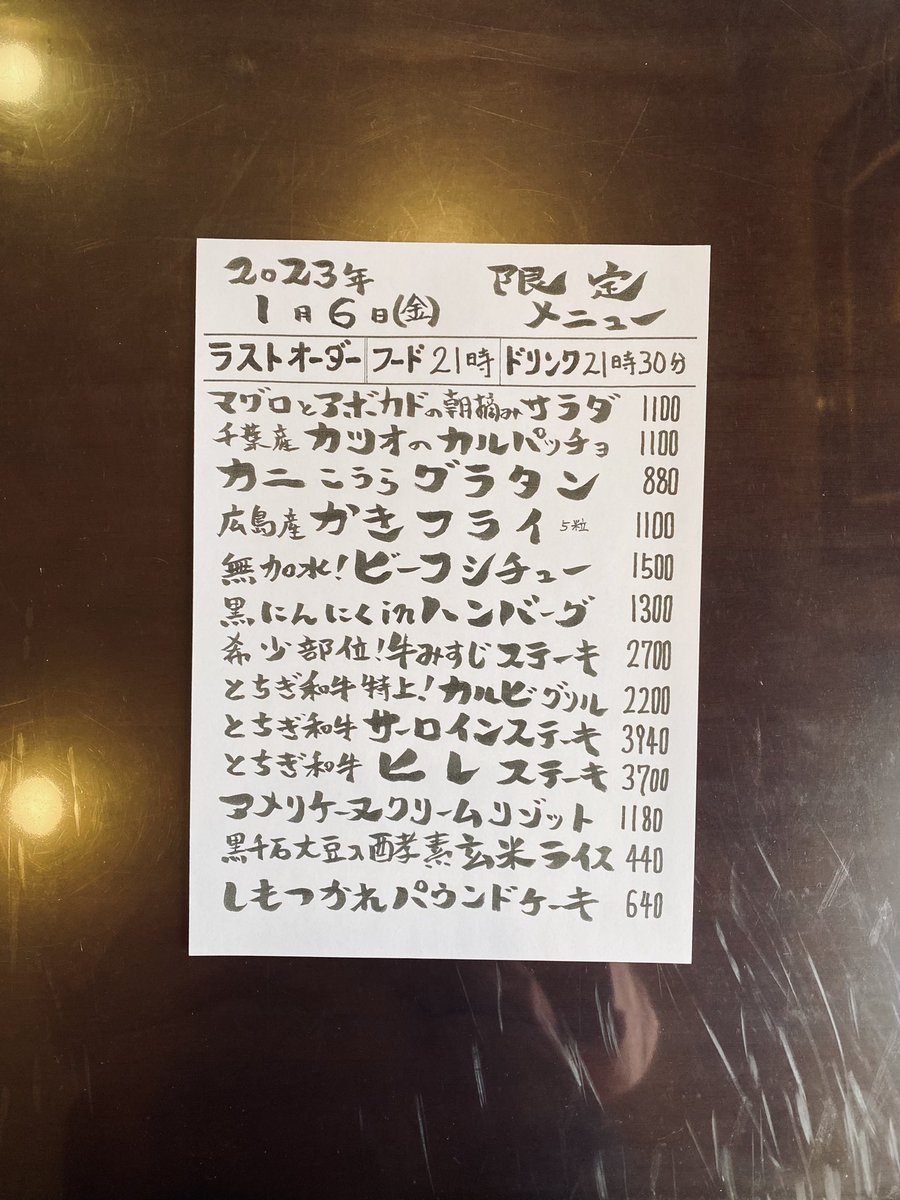 2023年 限定
1月6日(金) メニュー
ラストオーダー フード21時 ドリンク21時30分
マグロとアボカドの朝摘みサラダ 1100
千葉産 カツオのカルパッチョ 1100
カニこうらグラタン 880
広島産 かきフライ 5粒 1100
無加水!ビーフシチュー 1500
黒にんにくinハンバーグ 1300
希少部位!牛みすじステーキ 2700
とちぎ和牛特上!カルビグリル 2200
とちぎ和牛サーロインステーキ 3940
とちぎ和牛 ヒレステーキ 3700
アメリケーヌクリームリゾット 1180
黒千石大豆入酵素玄米ライス 440
しもつかれパウンドケーキ 640